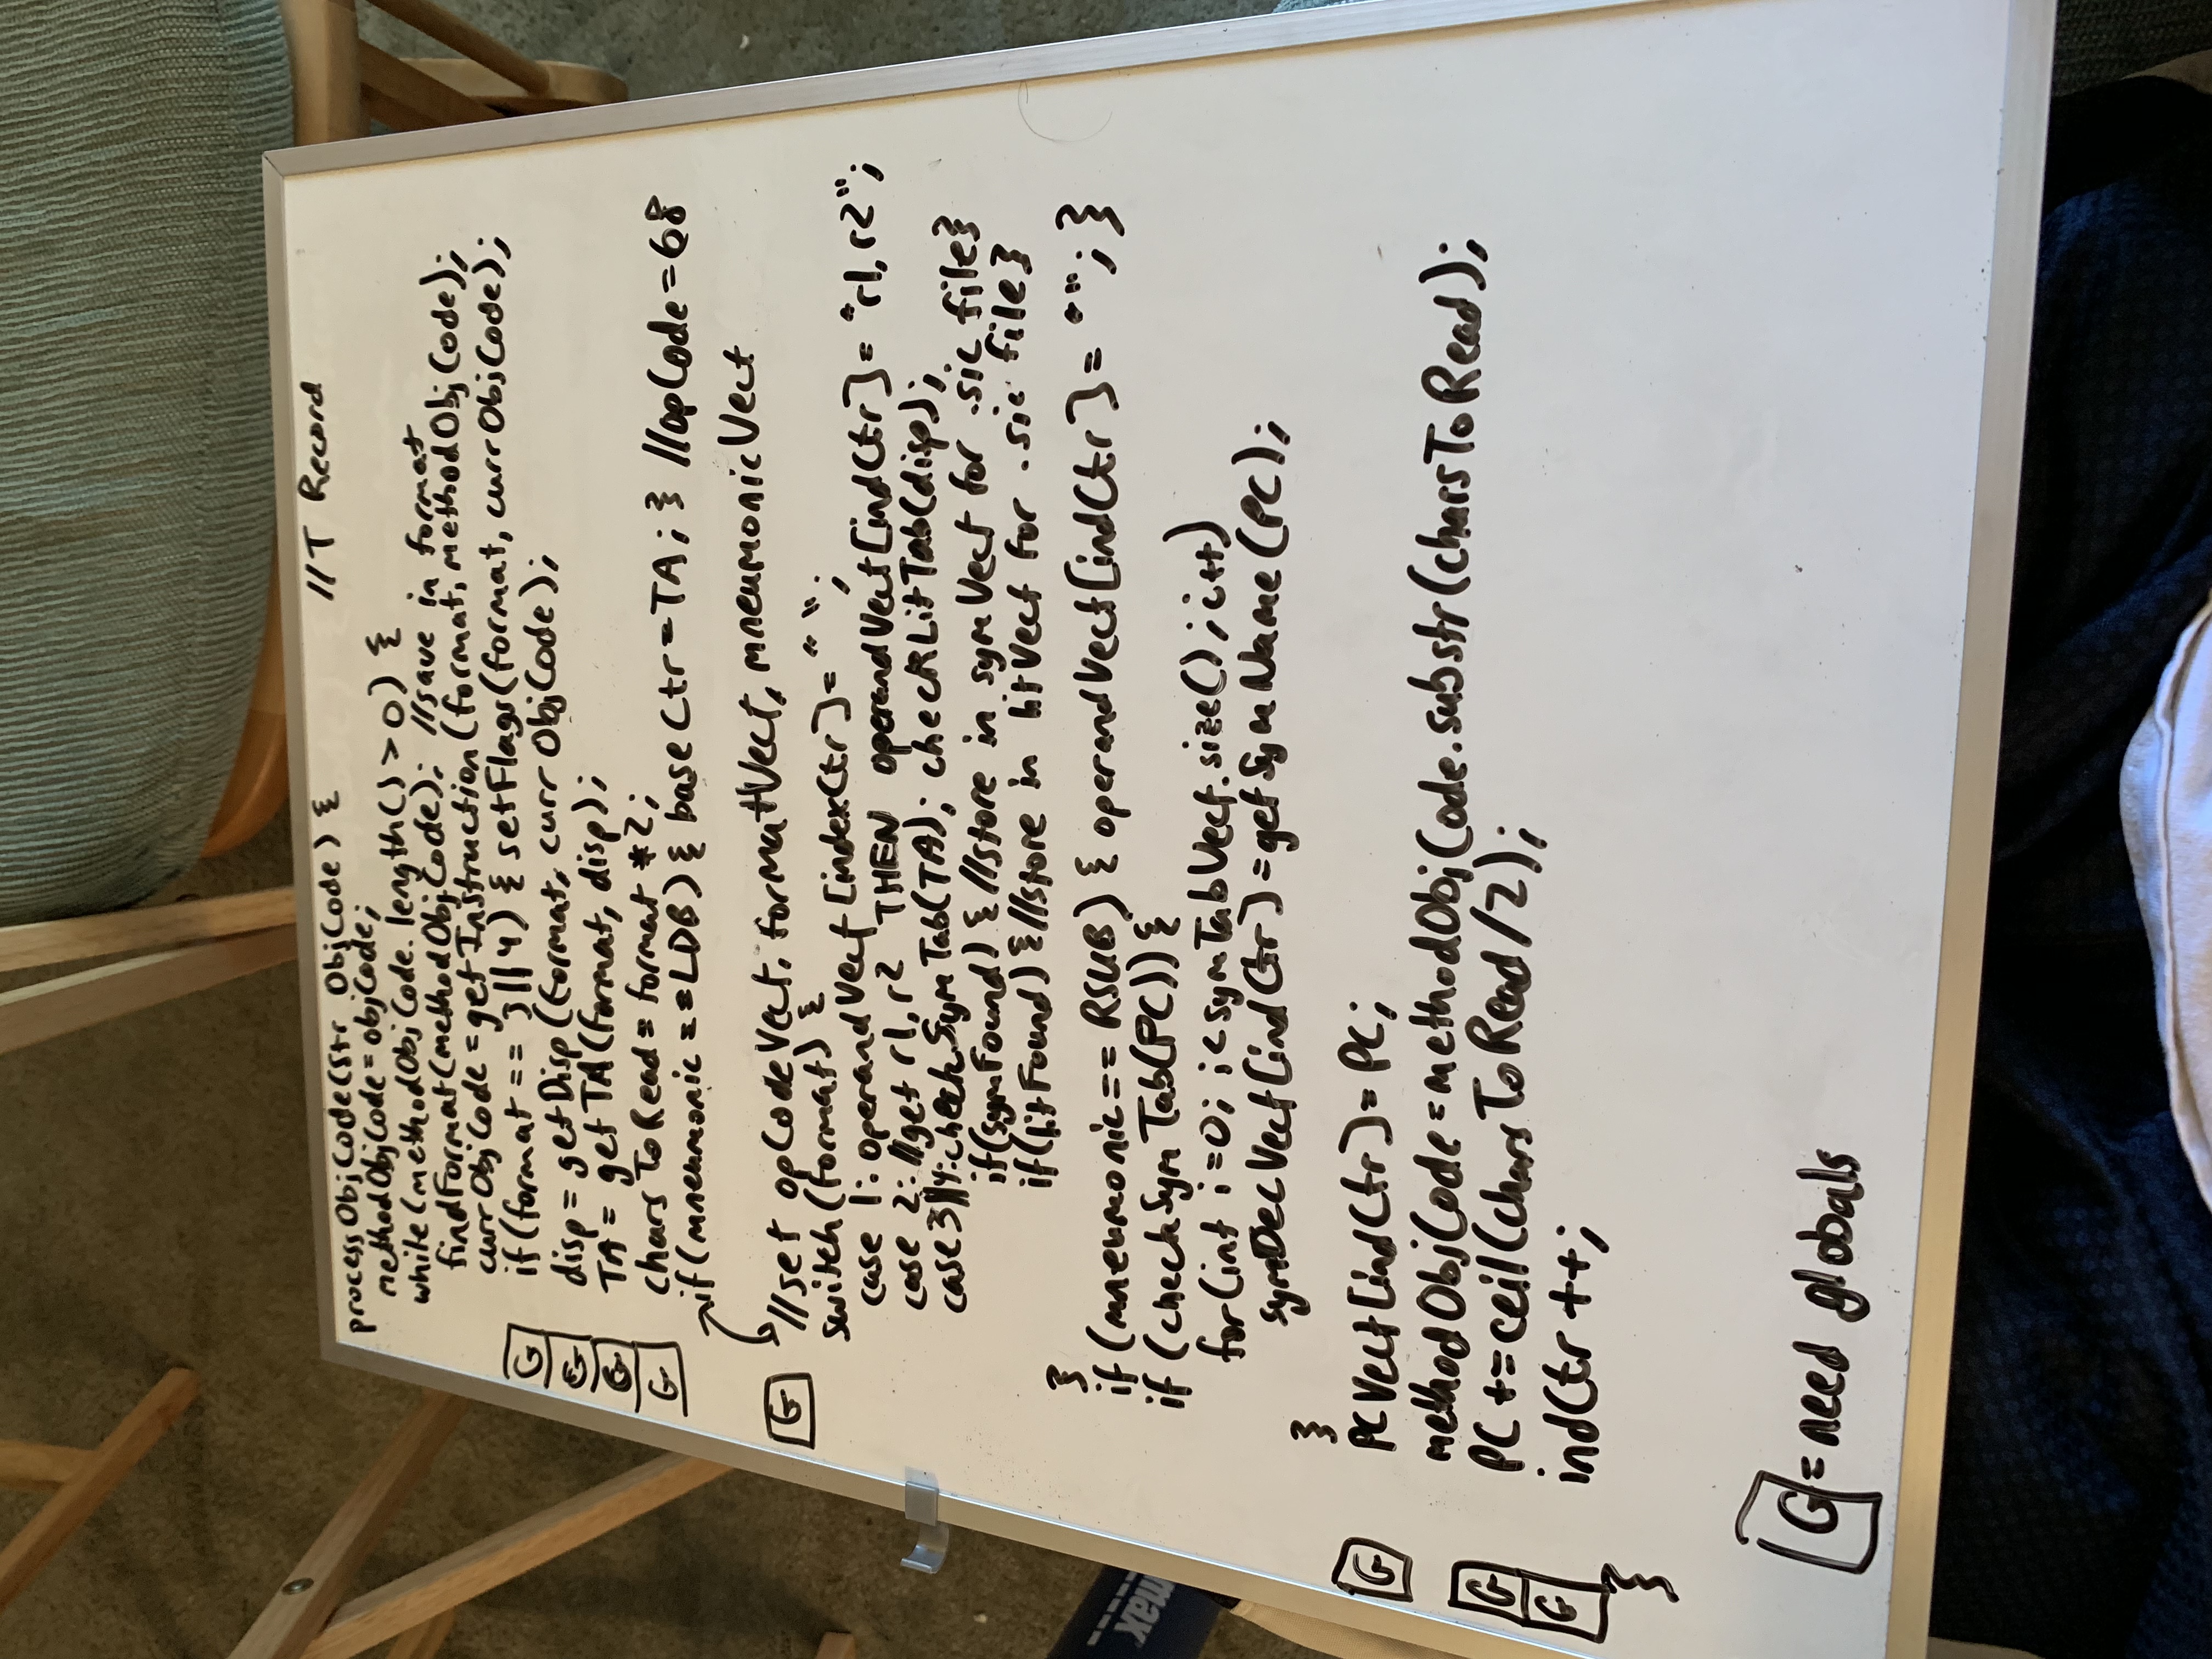 processObjCode(Str ObjCode) { //T Record
methodObjCode = objCode;
while(methodObjCode.length() > 0) {
findFormat(methodObjCode); //save in format
currObjCode = getInstruction(format, methodObjCode);
G if(format == 3||4) { setFlags(format, currObjCode);
G disp = getDisp(format, currObjCode);
G TA = getTA(format, disp);
G charsToRead = format *2;
if(mneumonic == LDB) { baseCtr = TA; } //opCode = 68
G //set opCodeVect, formatVect, mneumonicVect
switch(format) {
case 1: operandVect[indexCtr] = " ";
case 2: //get r1, r2 THEN operandVect[indCtr] = "r1, r2";
case 3||4: checkSymTab(TA); checkLitTab(disp);
if(symFound) { //store in symVect for .sic file}
if(litFound) { //store in litVect for .sic file}
}
if (mneumonic == RSUB) { operandVect[indCtr] = ""; }
if (checkSymTab(PC)) {
for(int i=0; i<symTabVect.size(); i++)
symDecVect[indCtr] = getSymName(PC);
}
G PCVect[indCtr] = PC;
methodObjCode = methodObjCode.substr(charsToRead);
G PC += ceil(charsToRead/2);
G indCtr ++;
}
G = need globals
max